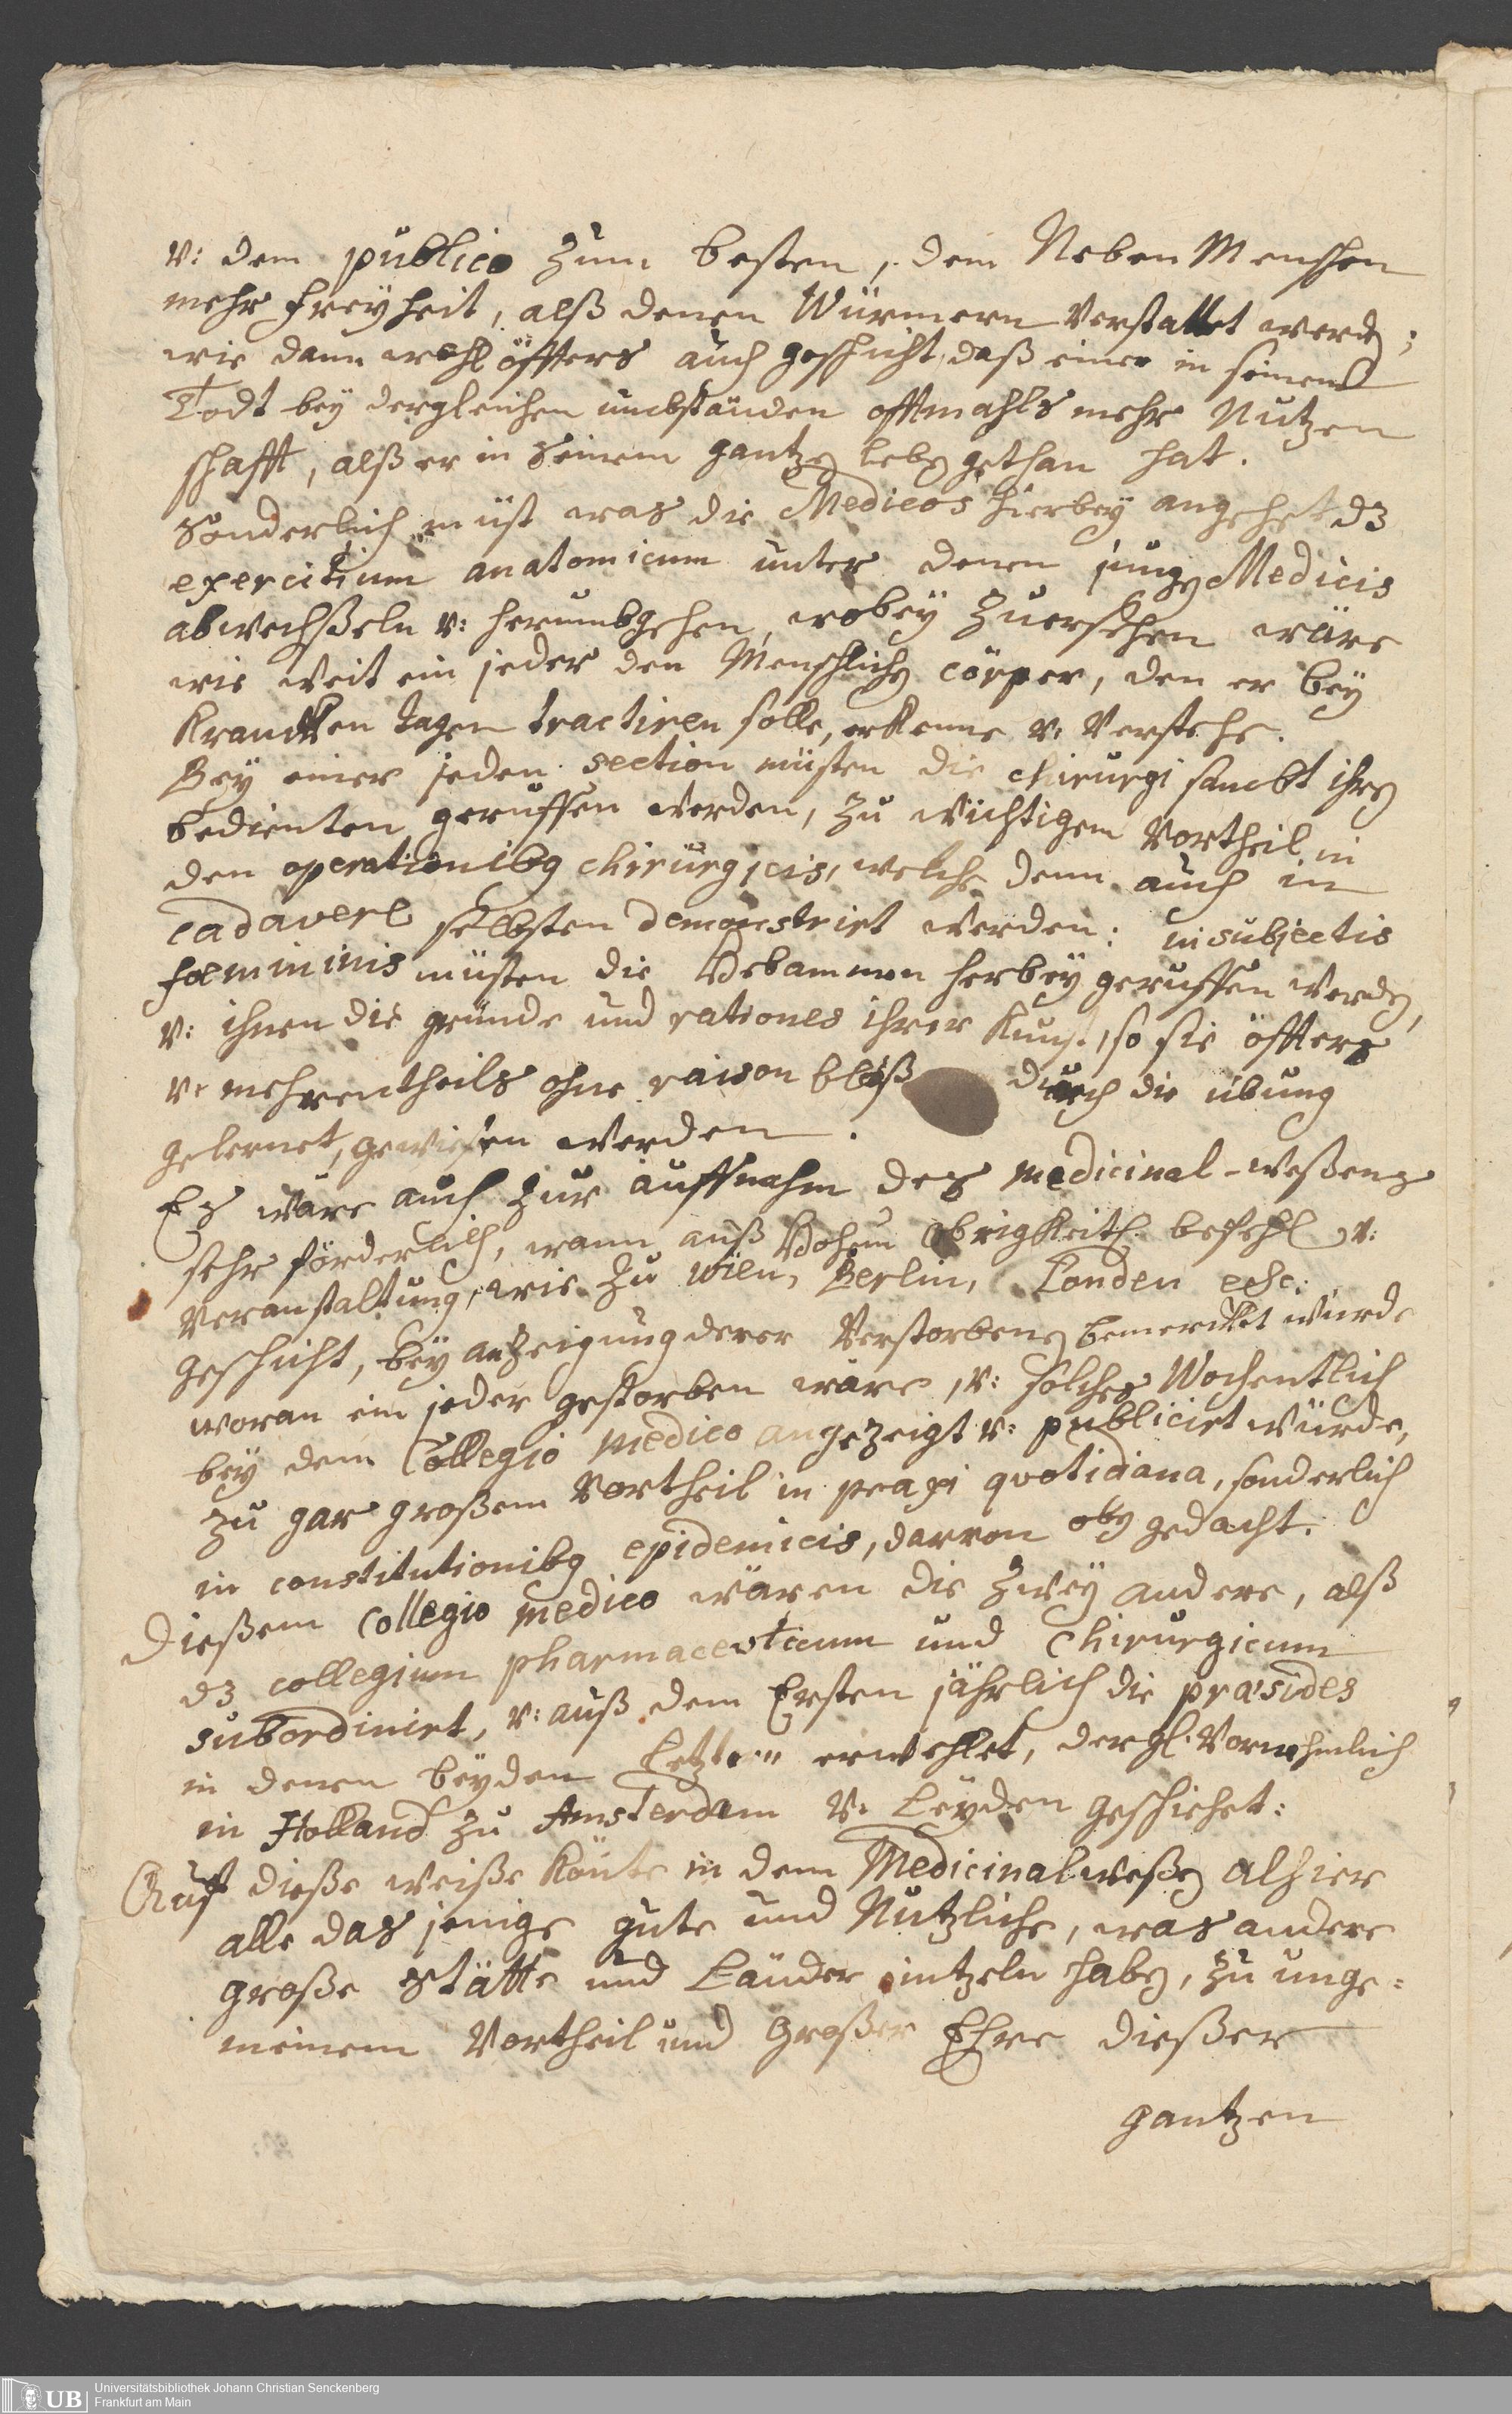 v: dem publico zum besten, dem Neben Menschen
mehr Freyheit, alß denen Würmern verstattet werden;
wie dann wohl öffters auch geschicht, daß einer in seinem
Todt bey dergleichen umbständen offtmahls mehr Nutzen
schafft, alß er in seinem gantzen leben gethan hat.
Sonderlich müst was die Medicos hierbey angehet dz
exercitium anatomicum unter denen jungen Medicis
abwechßeln v: herumbgehen, wobey zuersehen wäre
wie weit ein jeder den Menschlichen cörper, den er bey
Krancken tagen tractiren solle, erkenne v: verstehe.
Bey einer jeden section müsten die chirurgi sambt ihren
bedienten geruffen werden, zu wichtigem Vortheil in
den operationibus chirurgicis, welche denn auch in
cadavere selbsten demonstrirt werden: in subjectis
foemininis müsten die Hebammen herbey geruffen werden,
v: ihnen die gründe und rationes ihrer Kunst, so sie öffters
v: mehrentheils ohne raison bloß durch die übung
gelernet, gewiesen werden.
Es wäre auch zur auffnahm des medicinal-weßens
sehr förderlich, wann auß Hohem obrigkeitl. befehl v:
veranstaltung, wie zu Wien, Berlin, Londen etc:
geschicht, bey anzeigung derer Verstorbenen bemercket würde
woran ein jeder gestorben wäre, v: solches Wochentlich
bey dem Collegio medico angezeigt v: publicirt würde,
zu gar großem Vortheil in praxi quotidiana, sonderlich
in constitutionibus epidemicis, darvon oben gedacht.
Dießem Collegio medico wären die zwey andere, alß
dz collegium pharmaceuticum und Chirurgicum
subordinirt, v: auß dem Ersten jährlich die præsides
in denen beyden Letztern erwehlet, dergl. vornehmlich
in Holland zu Amsterdam v: Leyden geschiehet:
Auf dieße weiße könte in dem Medicinalweßen alhier
alle das jenige gute und Nutzliche, was andere
große Stätte und Länder eintzeln haben, zu unge=
meinem Vortheil und großer Ehre dießer
gantzen
UB Universitätsbibliothek Johann Christian Senckenberg
Frankfurt am Main